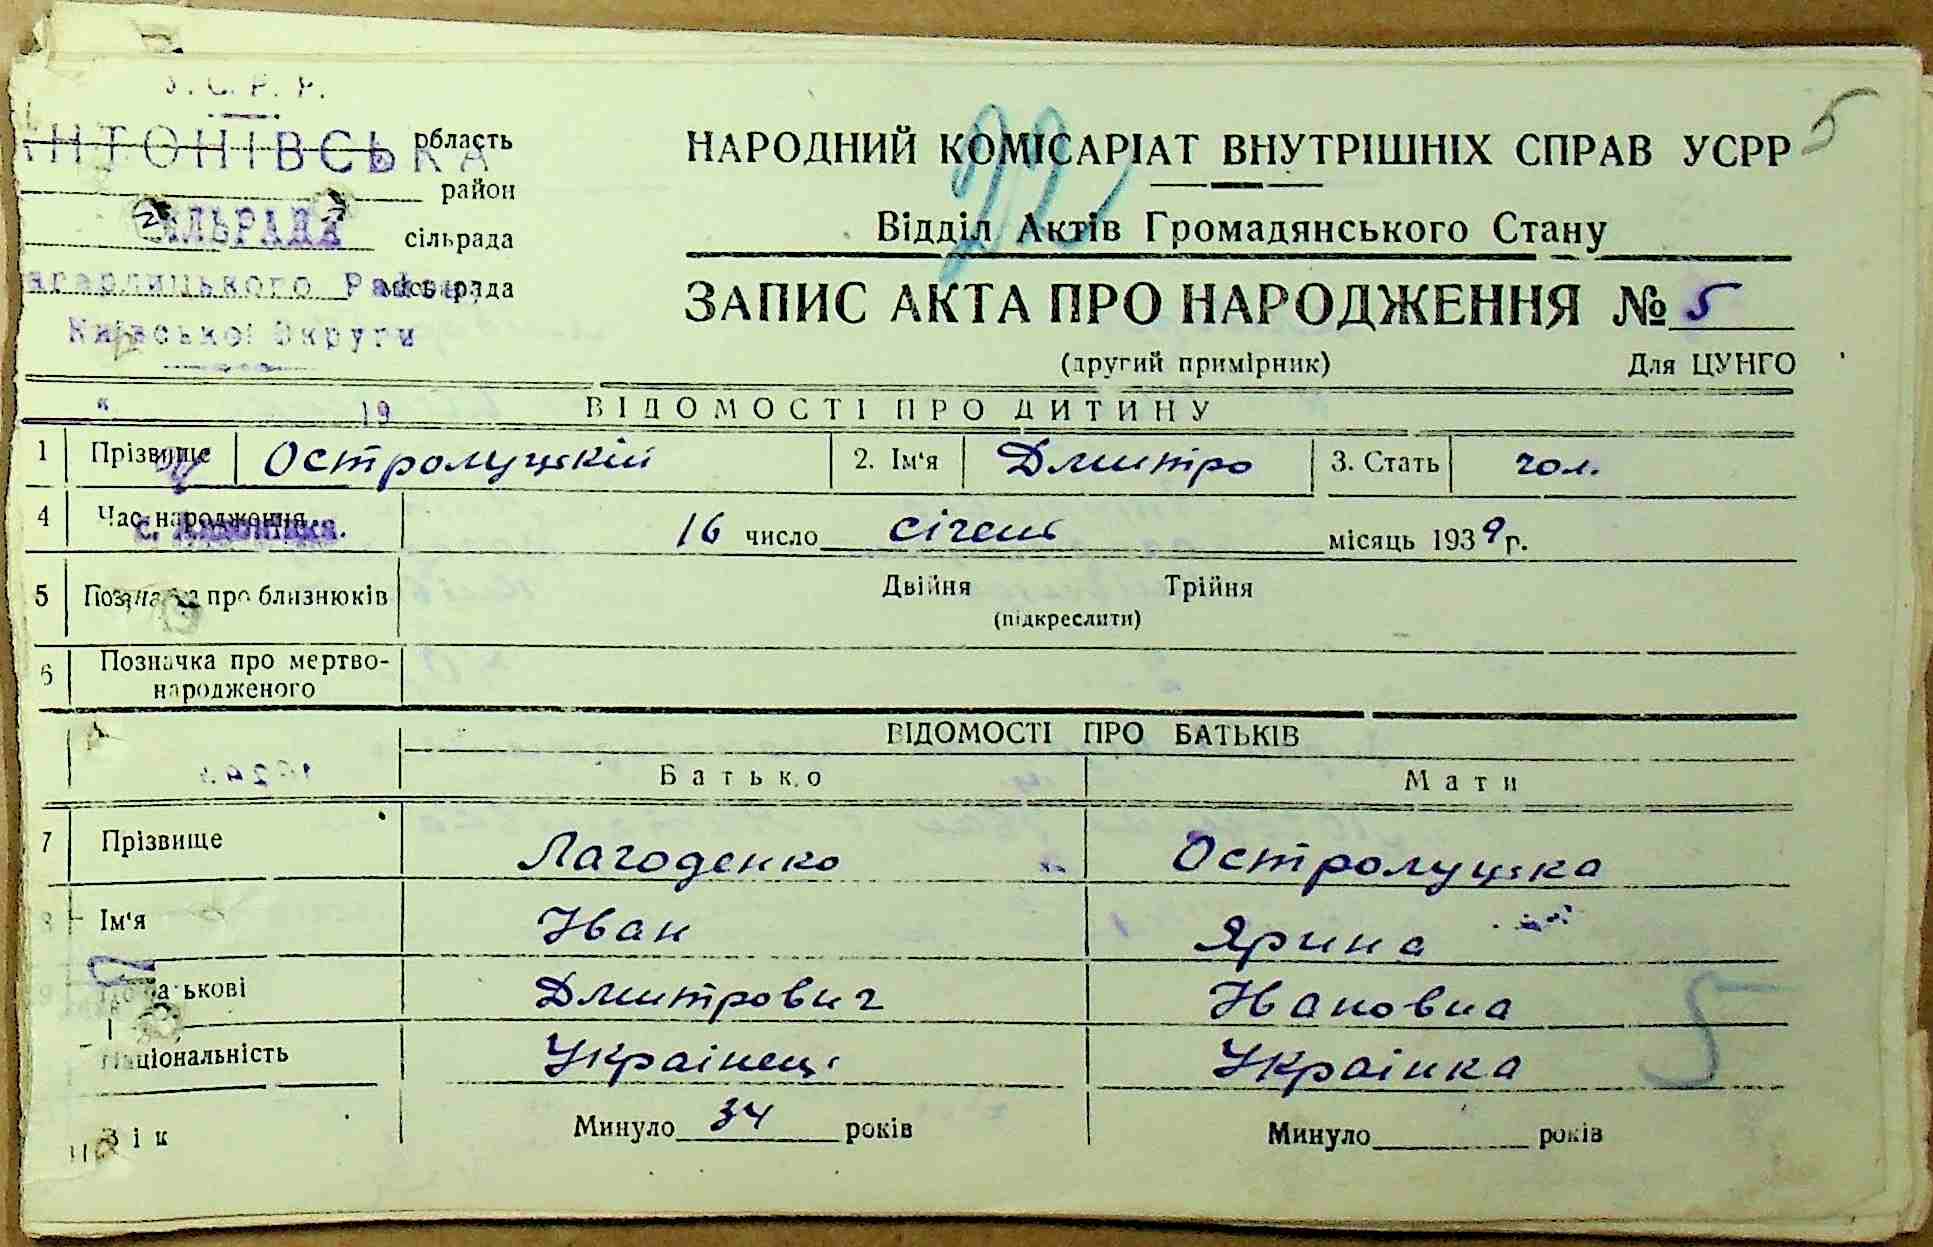 У.С.Р.Р.
НТОНІВСЬКА область
район
СІЛЬРАДА сільрада
агарлицького Району міськрада
Київської Округи
НАРОДНИЙ КОМІСАРІАТ ВНУТРІШНІХ СПРАВ УСРР 5
Відділ Актів Громадянського Стану
ЗАПИС АКТА ПРО НАРОДЖЕННЯ № 5
(другий примірник) Для ЦУНГО
" 19
ВІДОМОСТІ ПРО ДИТИНУ
1 Прізвище Остролуцкій 2. Ім'я Дмитро 3. Стать чол.
4 Час народження 16 число січень місяць 1939 р.
с. Антонівка.
5 Позначка про близнюків Двійня Трійня
(підкреслити)
6 Позначка про мертво-
народженого
ВІДОМОСТІ ПРО БАТЬКІВ
Батько Мати
7 Прізвище Лагоденко Остролуцка
8 Ім'я Іван Ярина
По батькові Дмитрович Івановна
Національність Украінець Украінка
5
Вік Минуло 34 років Минуло років